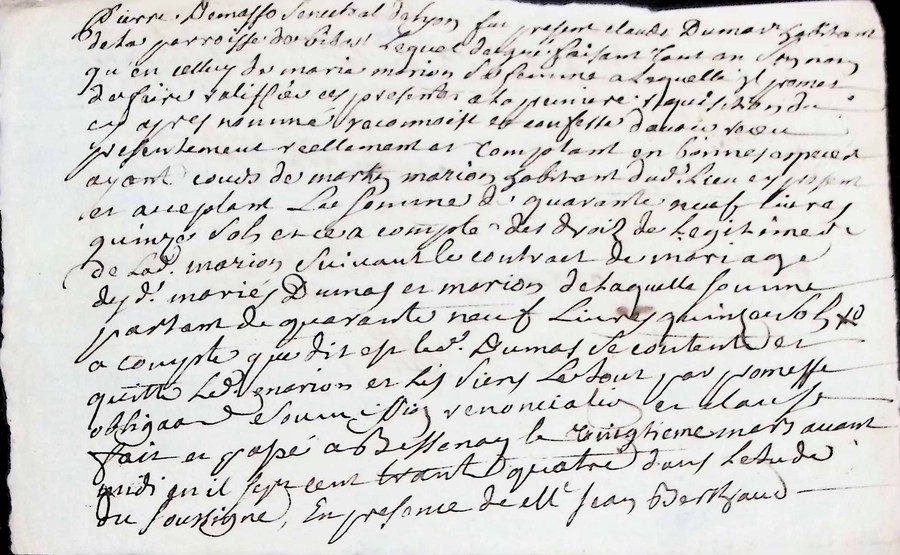 Pierre Demasso Senechal de Lyon fut present claude Dumas habitant
de la parroisse de lequel de gré faisant tant en Son nom
qu'en celluy de marie marion Sa femme a laquelle il promet
de faire ratiffier ces presentes a la premiere requisition du
cy apres nommé reconnoist et confesse d'avoir receu
presentement reellement et comptant en bonnes especes
ayant cours de martin marion habitant dud. Lieu cy present
et acceptant La Somme de quarante neuf Livres
quinze Sols et ce a compte des droiz de Legitime de
de Lad. marion Suivant le contract de mariage
desd. mariés Dumas et marion de laquelle Somme
partant de quarante neuf Livres quinze Sols
a compte que dit est led. Dumas Se contente et
quitte Led. marion et les Siens Le tout par promesse
obligaon Soumission renonciation et clause
fait et passé a Bessenay le vingtieme mars avant
midi mil sept cent trante quatre dans Letude
du Soussigné, En presence de Mr Jean Berthaud